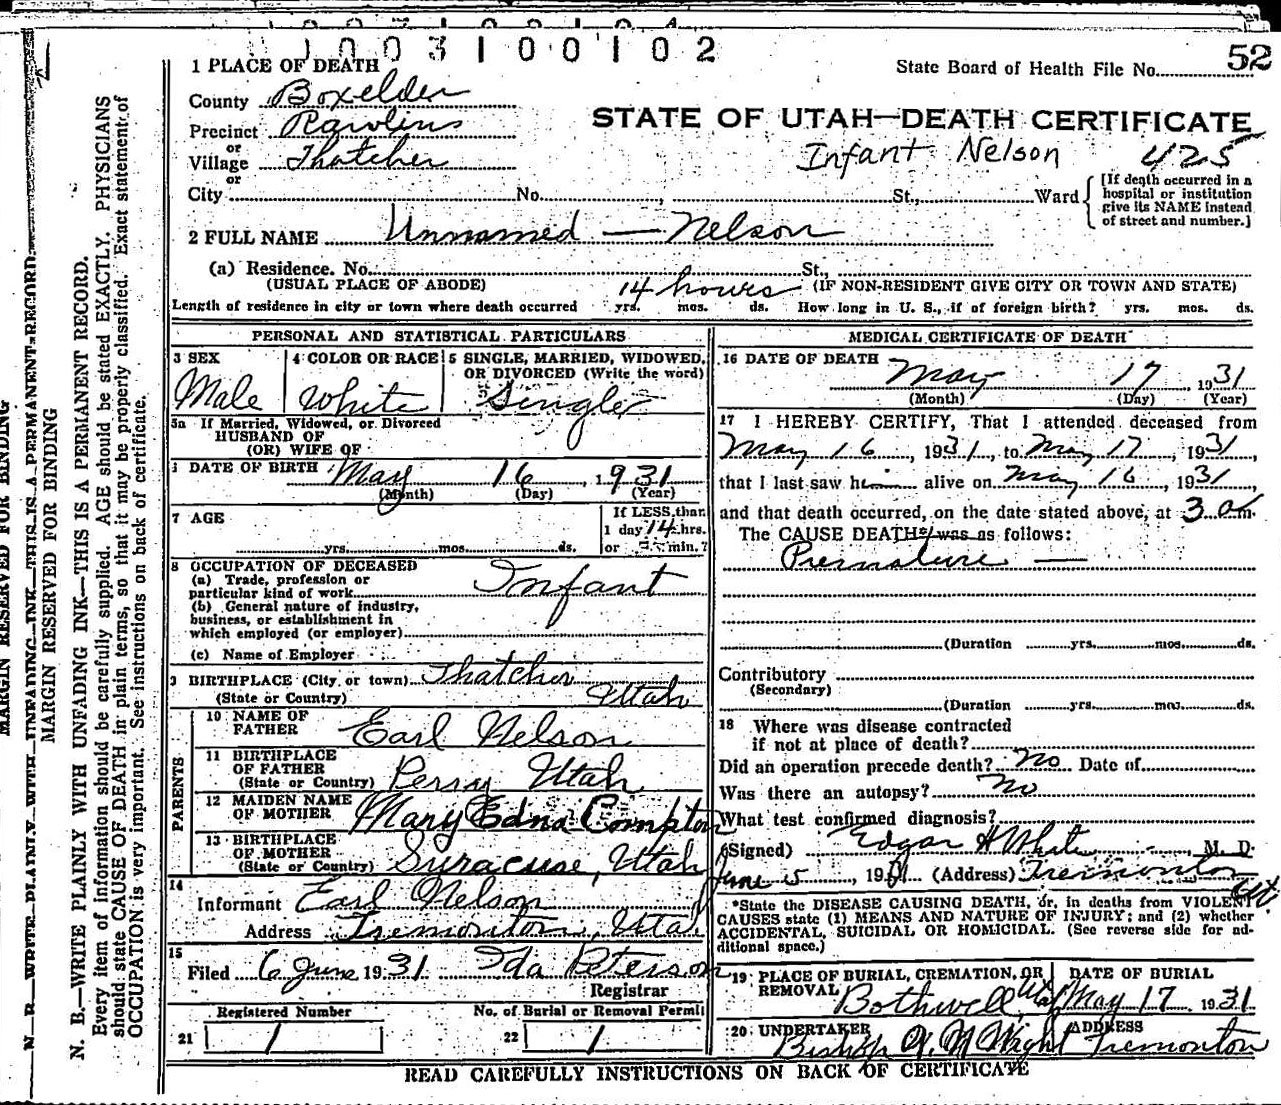 1003100102
52
1 PLACE OF DEATH
State Board of Health File No.
County Boxelder
STATE OF UTAH—DEATH CERTIFICATE
Precinct Rawlins
or
Infant Nelson 425
Village Thatcher
or
City No. , St., Ward
[If death occurred in a hospital or institution give its NAME instead of street and number.]
2 FULL NAME Unnamed — Nelson
(a) Residence. No. St.,
(USUAL PLACE OF ABODE) 14 hours (IF NON-RESIDENT GIVE CITY OR TOWN AND STATE)
Length of residence in city or town where death occurred yrs. mos. ds. How long in U. S., if of foreign birth? yrs. mos. ds.
PERSONAL AND STATISTICAL PARTICULARS
3 SEX Male
4 COLOR OR RACE White
5 SINGLE, MARRIED, WIDOWED, OR DIVORCED (Write the word) Single
5a If Married, Widowed, or Divorced
HUSBAND OF
(OR) WIFE OF
DATE OF BIRTH May 16, 1931
(Month) (Day) (Year)
7 AGE
yrs. mos. ds.
If LESS than
1 day 14 hrs.
or min.?
8 OCCUPATION OF DECEASED
(a) Trade, profession or
particular kind of work Infant
(b) General nature of industry,
business, or establishment in
which employed (or employer)
(c) Name of Employer
9 BIRTHPLACE (City or town) Thatcher
(State or Country) Utah
PARENTS
10 NAME OF
FATHER Earl Nelson
11 BIRTHPLACE
OF FATHER
(State or Country) Perry Utah
12 MAIDEN NAME
OF MOTHER Mary Edna Compton
13 BIRTHPLACE
OF MOTHER
(State or Country) Suracuse, Utah
14
Informant Earl Nelson
Address Tremonton, Utah
15
Filed 6 June 1931 Ida Peterson
Registrar
Registered Number
21 1
No. of Burial or Removal Permit
22 1
MEDICAL CERTIFICATE OF DEATH
16 DATE OF DEATH
May 17 1931
(Month) (Day) (Year)
17 I HEREBY CERTIFY, That I attended deceased from
May 16, 1931, to May 17, 1931,
that I last saw him alive on May 16, 1931,
and that death occurred, on the date stated above, at 3 a.m.
The CAUSE DEATH* was as follows:
Premature —
(Duration yrs. mos. ds.
Contributory
(Secondary)
(Duration yrs. mos. ds.
18 Where was disease contracted
if not at place of death?
Did an operation precede death? No Date of
Was there an autopsy? No
What test confirmed diagnosis?
(Signed) Edgar H White, M. D.
June 5, 19 (Address) Tremonton Ut.
*State the DISEASE CAUSING DEATH, or, in deaths from VIOLENT
CAUSES state (1) MEANS AND NATURE OF INJURY; and (2) whether
ACCIDENTAL, SUICIDAL OR HOMICIDAL. (See reverse side for ad-
ditional space.)
19 PLACE OF BURIAL, CREMATION, OR
REMOVAL Bothwell, Utah
DATE OF BURIAL
May 17 1931
20 UNDERTAKER ADDRESS
Bishop Wight Tremonton
READ CAREFULLY INSTRUCTIONS ON BACK OF CERTIFICATE
MARGIN RESERVED FOR BINDING
N. B.—WRITE PLAINLY WITH UNFADING INK—THIS IS A PERMANENT RECORD
MARGIN RESERVED FOR BINDING
N. B.—WRITE PLAINLY WITH UNFADING INK—THIS IS A PERMANENT RECORD.
Every item of information should be carefully supplied. AGE should be stated EXACTLY. PHYSICIANS
should state CAUSE OF DEATH in plain terms, so that it may be properly classified. Exact statement of
OCCUPATION is very important. See instructions on back of certificate.